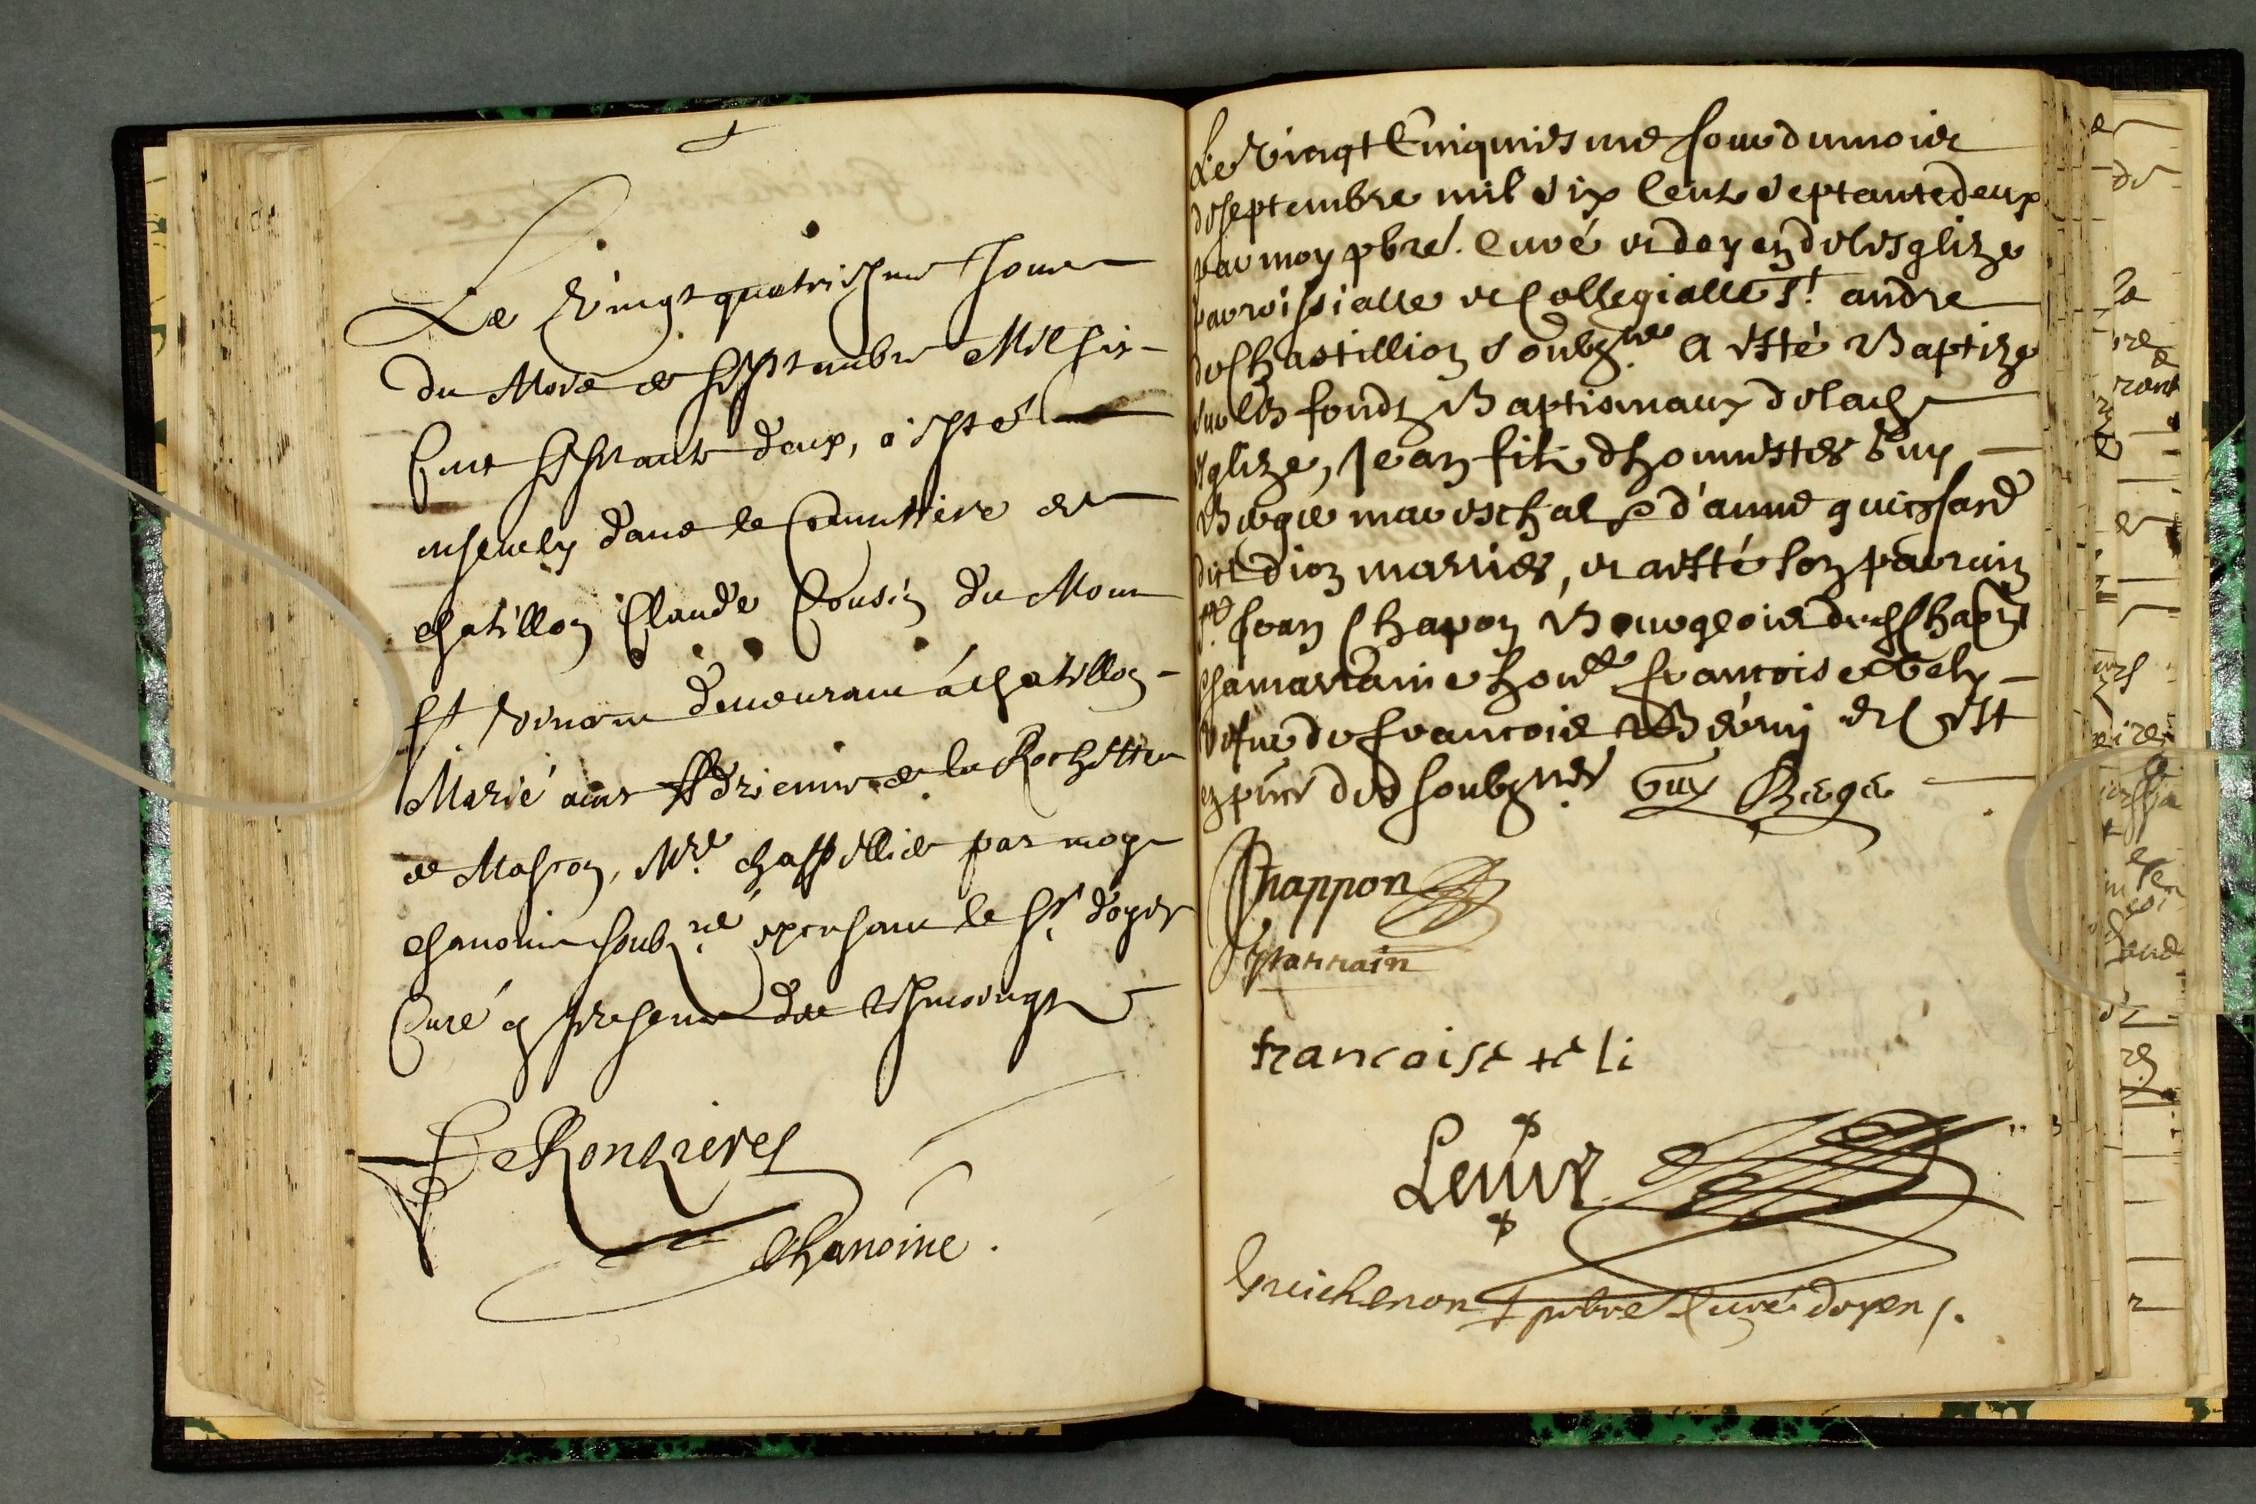 Le Vingt quatriesme Jour
du Mois de Septembre Mil six
Cent septante deux, a esté
ensevely dans le Cemettiere de
chatillon Claude Cousin du Mont
St demeurant á chatillon
Marié avec Adrienne de la Rochette
de Mascon, par moy
chanoine soubz.né le Sr doyen
Curé en presence des tesmoingts
De Ronzieres
Chanoine.
Le Vingt Cinquiesme Jour du mois
de septembre mil six Centz septante deux
par moy pbre. Curé et doyen de l'esglize
parroissialle et Collegialle St. andre
de Chastillion soubz.ne A esté Baptize
sur les fondz Baptismaux de lad.
esglize, Jean filz d'honnestes Guy
Berge mareschal & d'anne guichard
dict dion mariés, et a esté son parrain
Jean Chapon Bourgeois dud Chaon
sa marraine hon.e francoise tely
vefue de francois et C est
en pnce des soubz.nes Guy Berge
Chappon
parrain
francoise teli
Guichenon pbre Curé doyen